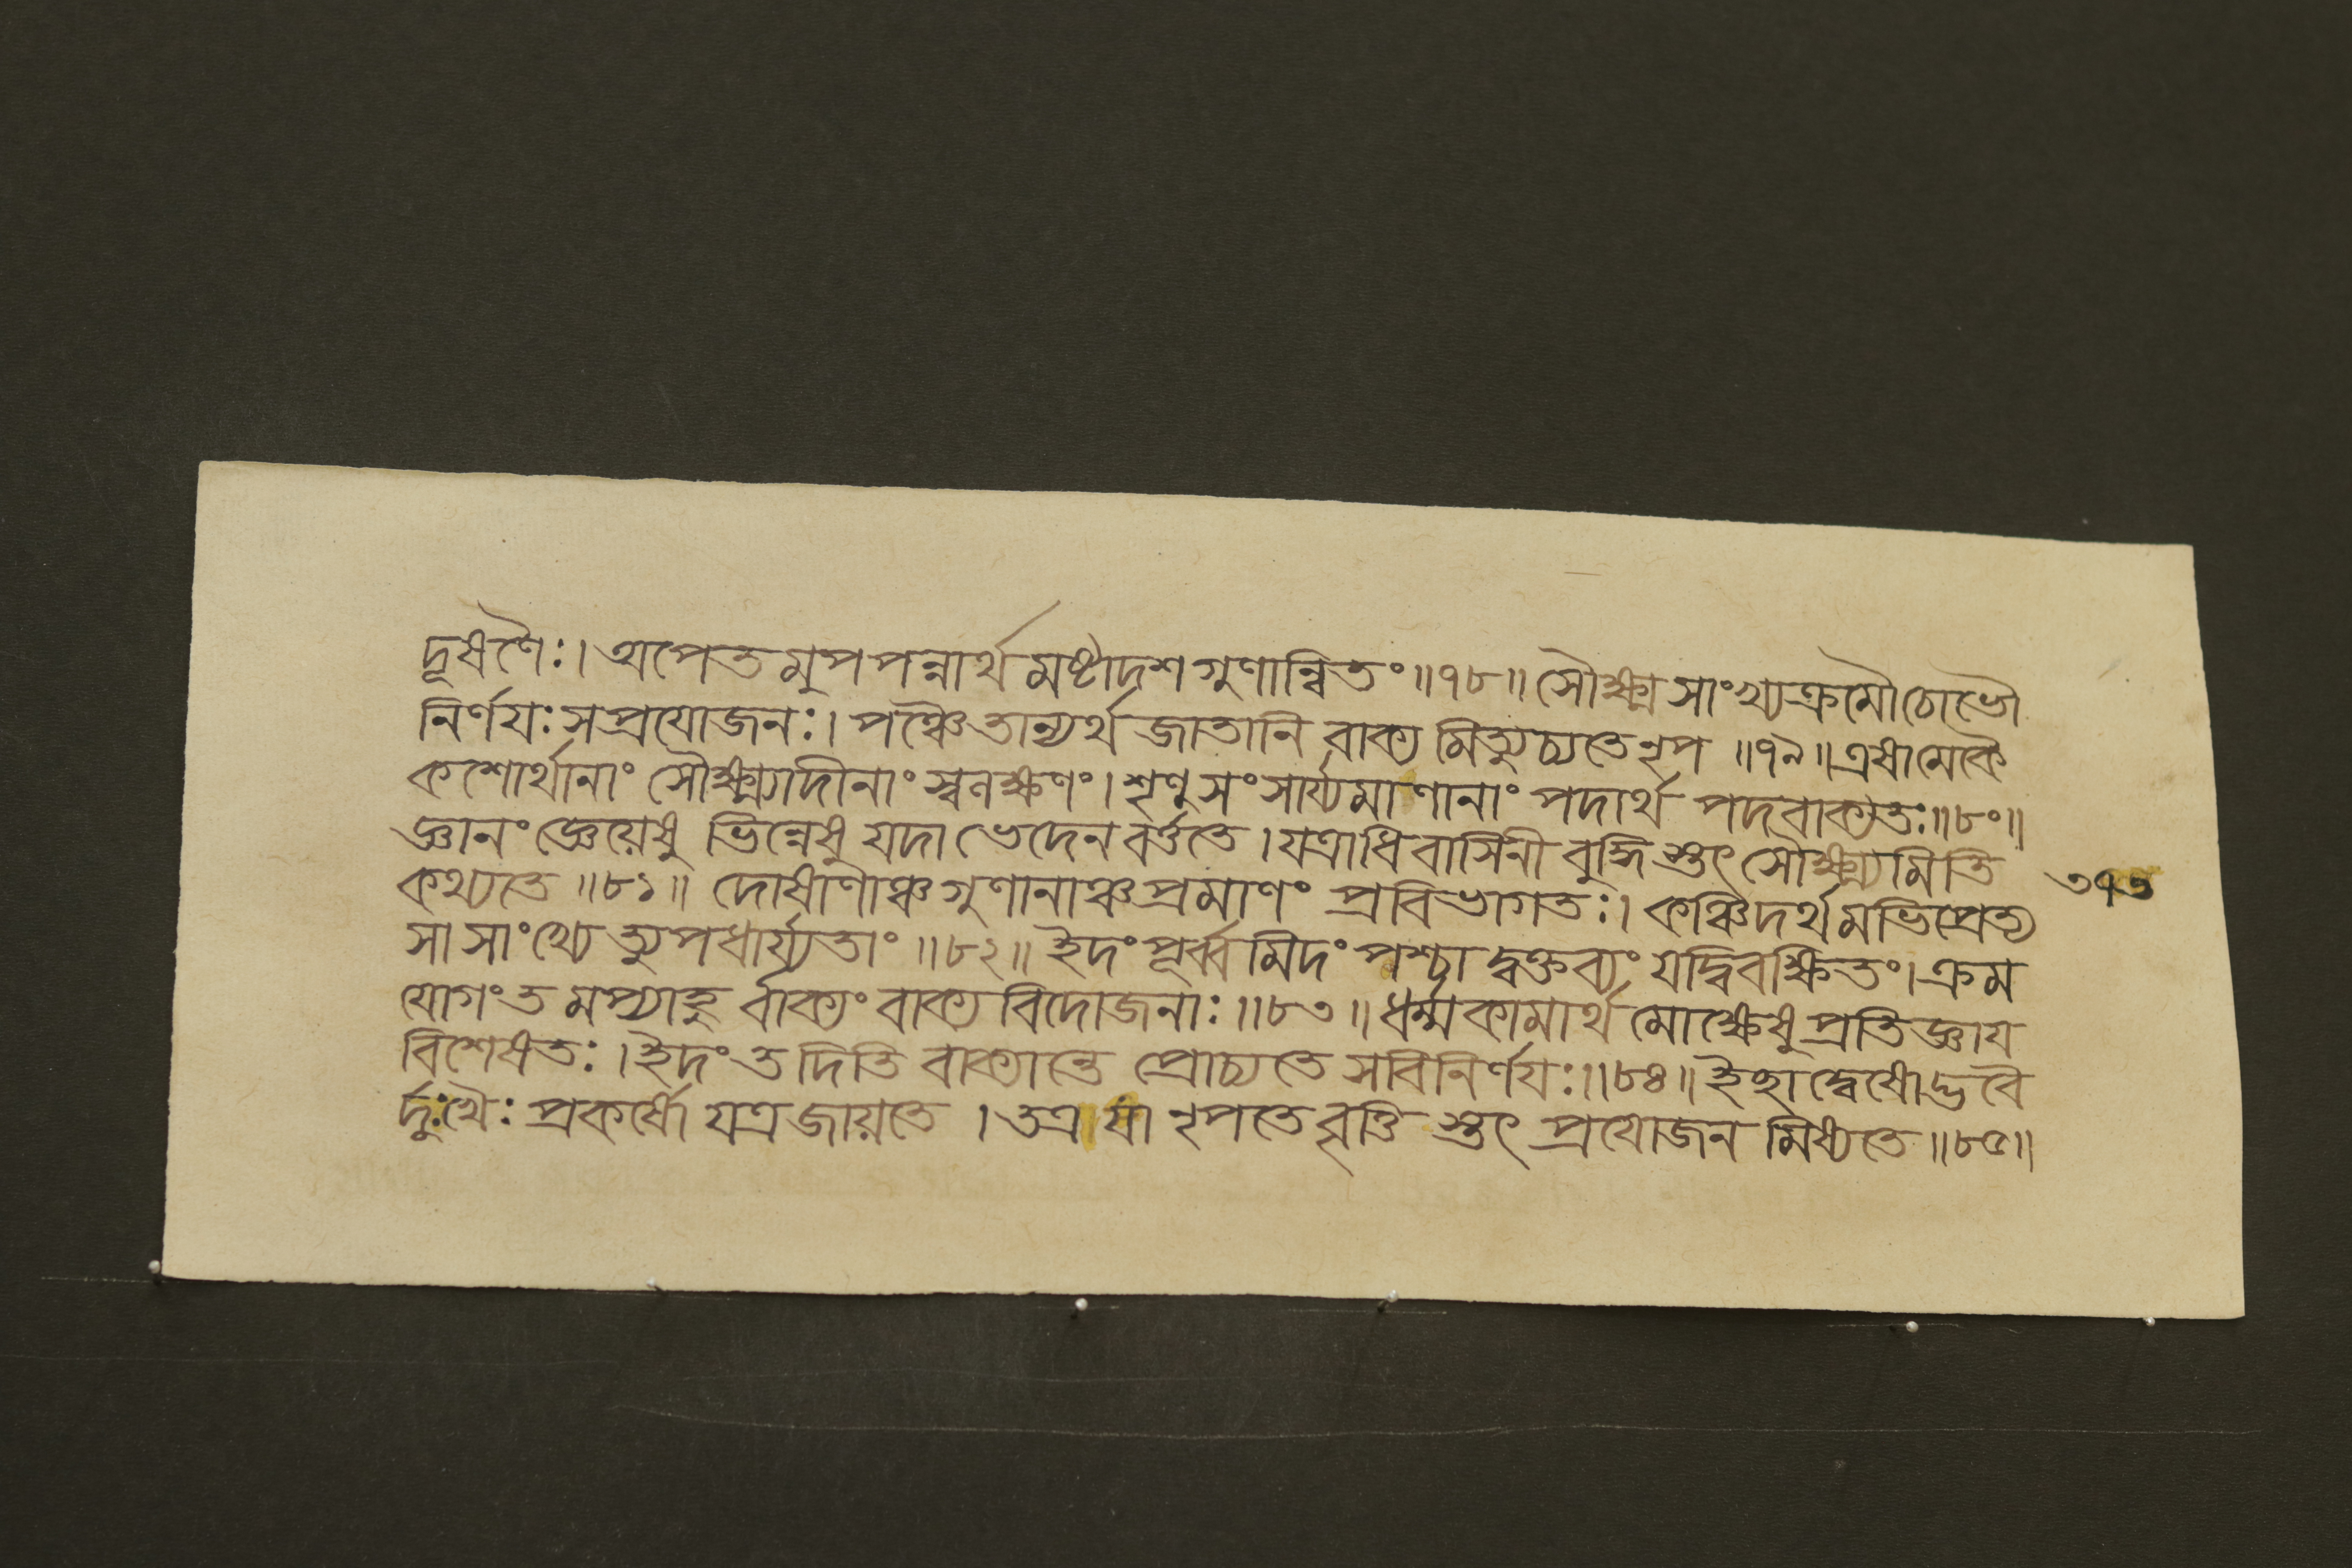 দূষণৈঃ। অপেতমুপপন্নার্থমষ্টাদশগুণান্বিতং॥৭৮॥ সৌক্ষ্মসাংখ্যক্রমৌচোভৌ
নির্ণয়ঃ সপ্রযোজনঃ। পঞ্চৈতান্যর্থজাতানি বাক্যমিত্যুচ্যতে নৃপ॥৭৯॥ এষামেকৈ
কশোর্থানাং সৌক্ষ্ম্যাদীনাং স্বলক্ষণং। শৃণু সংসার্য্যমাণানাং পদার্থ পদবাক্যতঃ॥৮০॥
জ্ঞানং জ্ঞেয়েষু ভিন্নেষু যদা ভেদেন বর্ত্ততে। যত্রাধিবাসিনী বুদ্ধিস্তৎ সৌক্ষ্ম্যমিতি
কথ্যতে॥৮১॥ দোষাণাঞ্চ গুণানাঞ্চ প্রমাণং প্রবিভাগতঃ। কঞ্চিদর্থমভিপ্রেত্য
৩৭৩
সা সাংখ্যেত্যুপধার্য্যতাং॥৮২॥ ইদং পূর্ব্বমিদং পশ্চাদ্বক্তব্যং যদ্বিবক্ষিতং। ক্রম
যোগং তমপ্যাহু র্বাক্যং বাক্যবিদোজনাঃ॥৮৩॥ ধর্ম্মকামার্থমোক্ষেষু প্রতিজ্ঞায
বিশেষতঃ। ইদং তদিতি বাক্যান্তে প্রোচ্যতে সবিনির্ণয়ঃ॥৮৪॥ ইহাদ্বেষোদ্ভবৈ
র্দুঃখৈঃ প্রকর্ষো যত্র জায়তে। তত্র যা নৃপতে বৃত্তিস্তৎ প্রযোজনমিষ্যতে॥৮৫॥